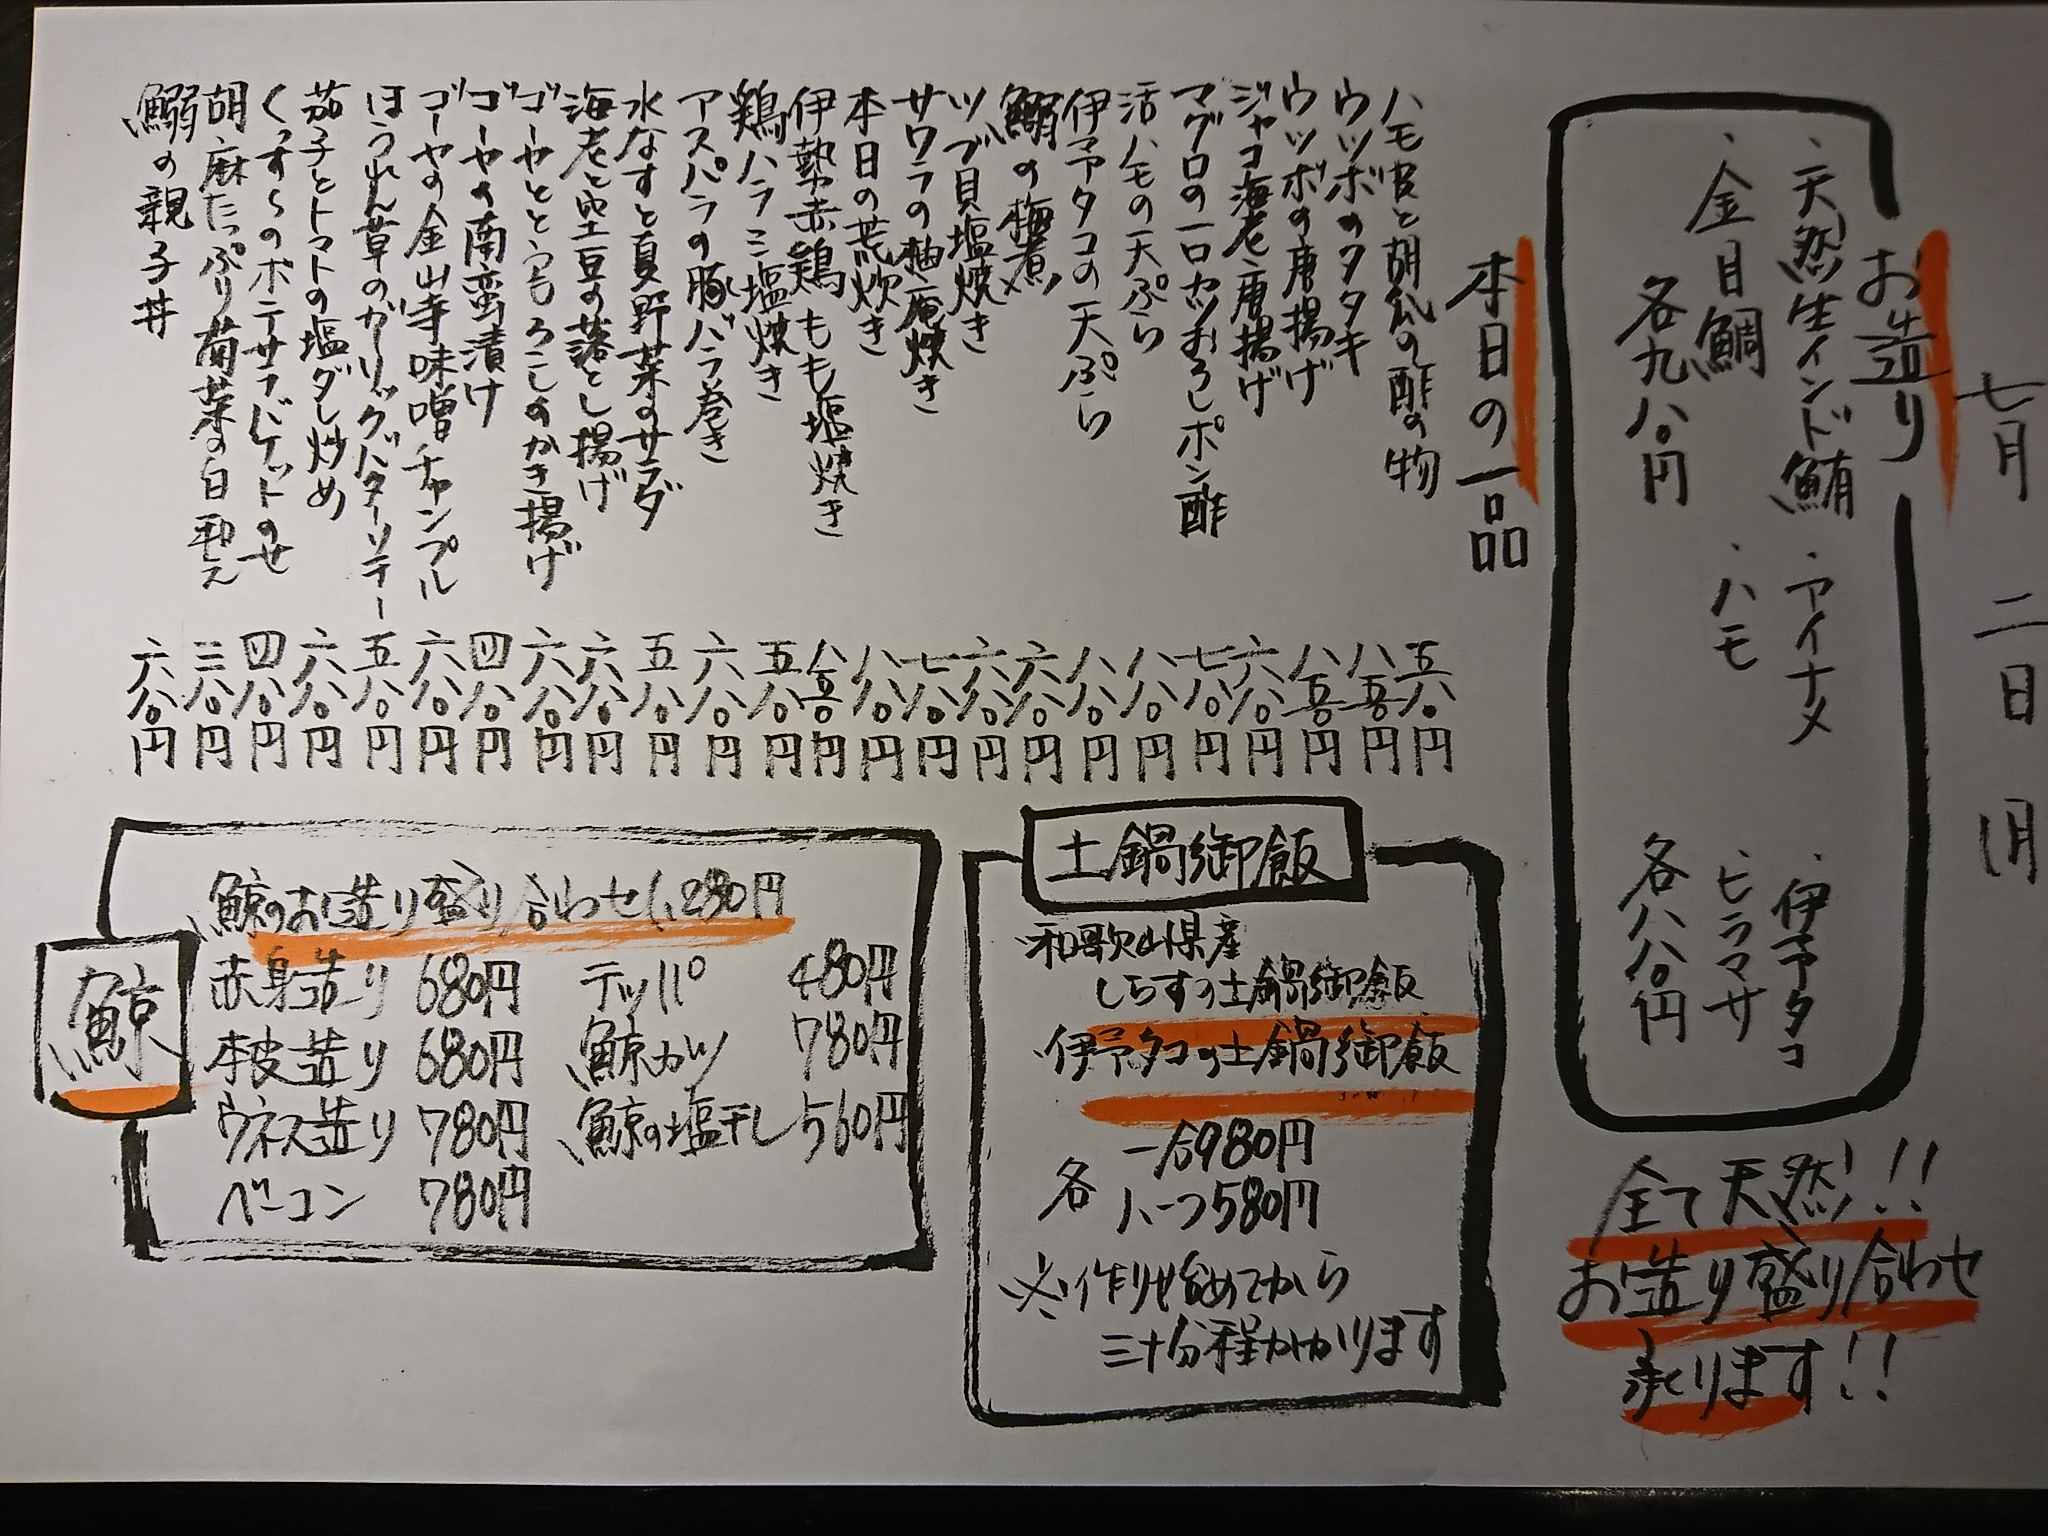 七月二日 月
お造り
・天然生インド鮪
・アイナメ
・伊予タコ
・金目鯛
・ハモ
・ヒラマサ
各九八〇円
各八八〇円
全て天然!!
お造り盛り合わせ
承ります!!
本日の一品
ハモ皮と胡瓜の酢の物 五八〇円
ウツボのタタキ 八五〇円
ウツボの唐揚げ 八五〇円
ジャコ海老唐揚げ 六八〇円
マグロの一口カツおろしポン酢 七八〇円
活ハモの天ぷら 八八〇円
伊予タコの天ぷら 八八〇円
鰯の梅煮 六八〇円
ツブ貝塩焼き 六八〇円
サワラの柚庵焼き 七八〇円
本日の荒炊き 八八〇円
伊勢赤鶏もも塩焼き 八五〇円
鶏ハラミ塩焼き 五八〇円
アスパラの豚バラ巻き 六八〇円
水なすと夏野菜のサラダ 五八〇円
海老と空豆の落とし揚げ 六八〇円
ゴーヤととうもろこしのかき揚げ 六八〇円
ゴーヤの南蛮漬け 四八〇円
ゴーヤの金山寺味噌チャンプル 六八〇円
ほうれん草のガーリックバターソテー 五八〇円
茄子とトマトの塩ダレ炒め 六八〇円
くんすらのポテサラバケットのせ 四八〇円
胡麻たっぷり菊菜の白和え 三八〇円
鰯の親子丼 六八〇円
土鍋御飯
和歌山県産
しらすの土鍋御飯
伊予タコの土鍋御飯
各
一合980円
ハーフ580円
※作り始めてから
三十分程かかります
鯨
鯨のお造り盛り合わせ1,280円
赤身造り 680円 テッパ 480円
本皮造り 680円 鯨カツ 780円
ウネス造り 780円 鯨の塩干し 560円
ベーコン 780円